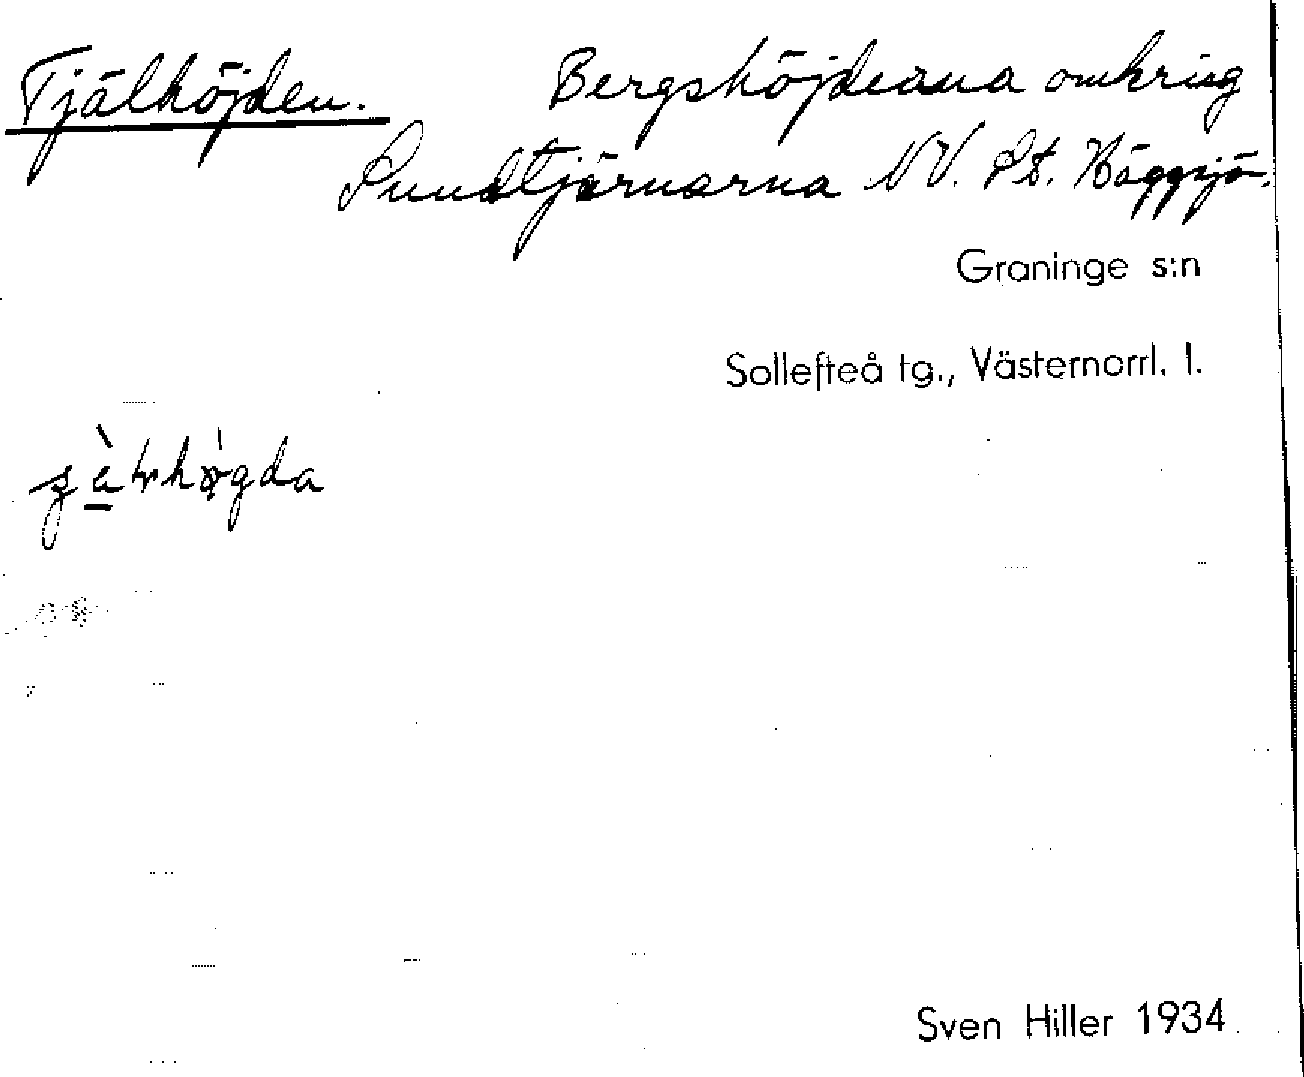 Tjälhöjden. Bergshöjdeana omkring
Sundtjärnarna NV. St. Häggsjö.
Graninge s:n
Sollefteå tg., Västernorrl. l.
Sven Hiller 1934